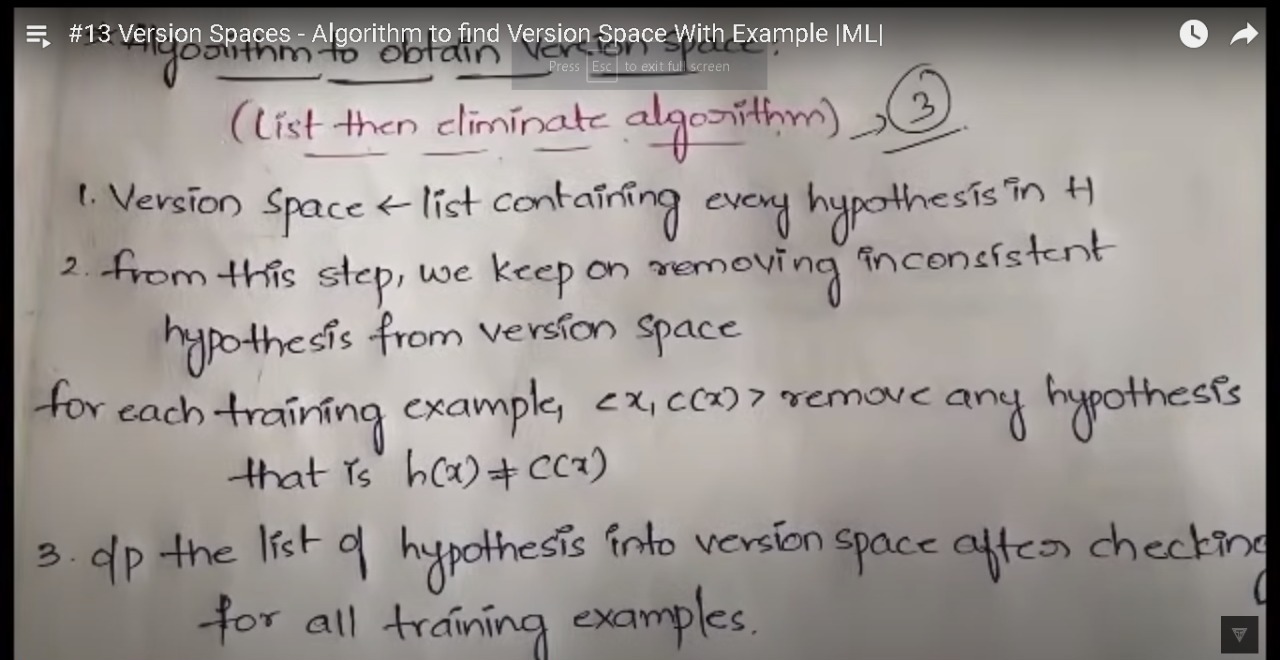 #13 Version Spaces - Algorithm to find Version Space With Example |ML|
Algorithm to obtain Version space.
Press Esc to exit full screen
(List then eliminate algorithm) → 3
1. Version Space ← list containing every hypothesis in H
2. from this step, we keep on removing inconsistent
hypothesis from version space
for each training example, <x, c(x)> remove any hypothesis
that is h(x) ≠ C(x)
3. o/p the list of hypothesis into version space after checking
for all training examples.